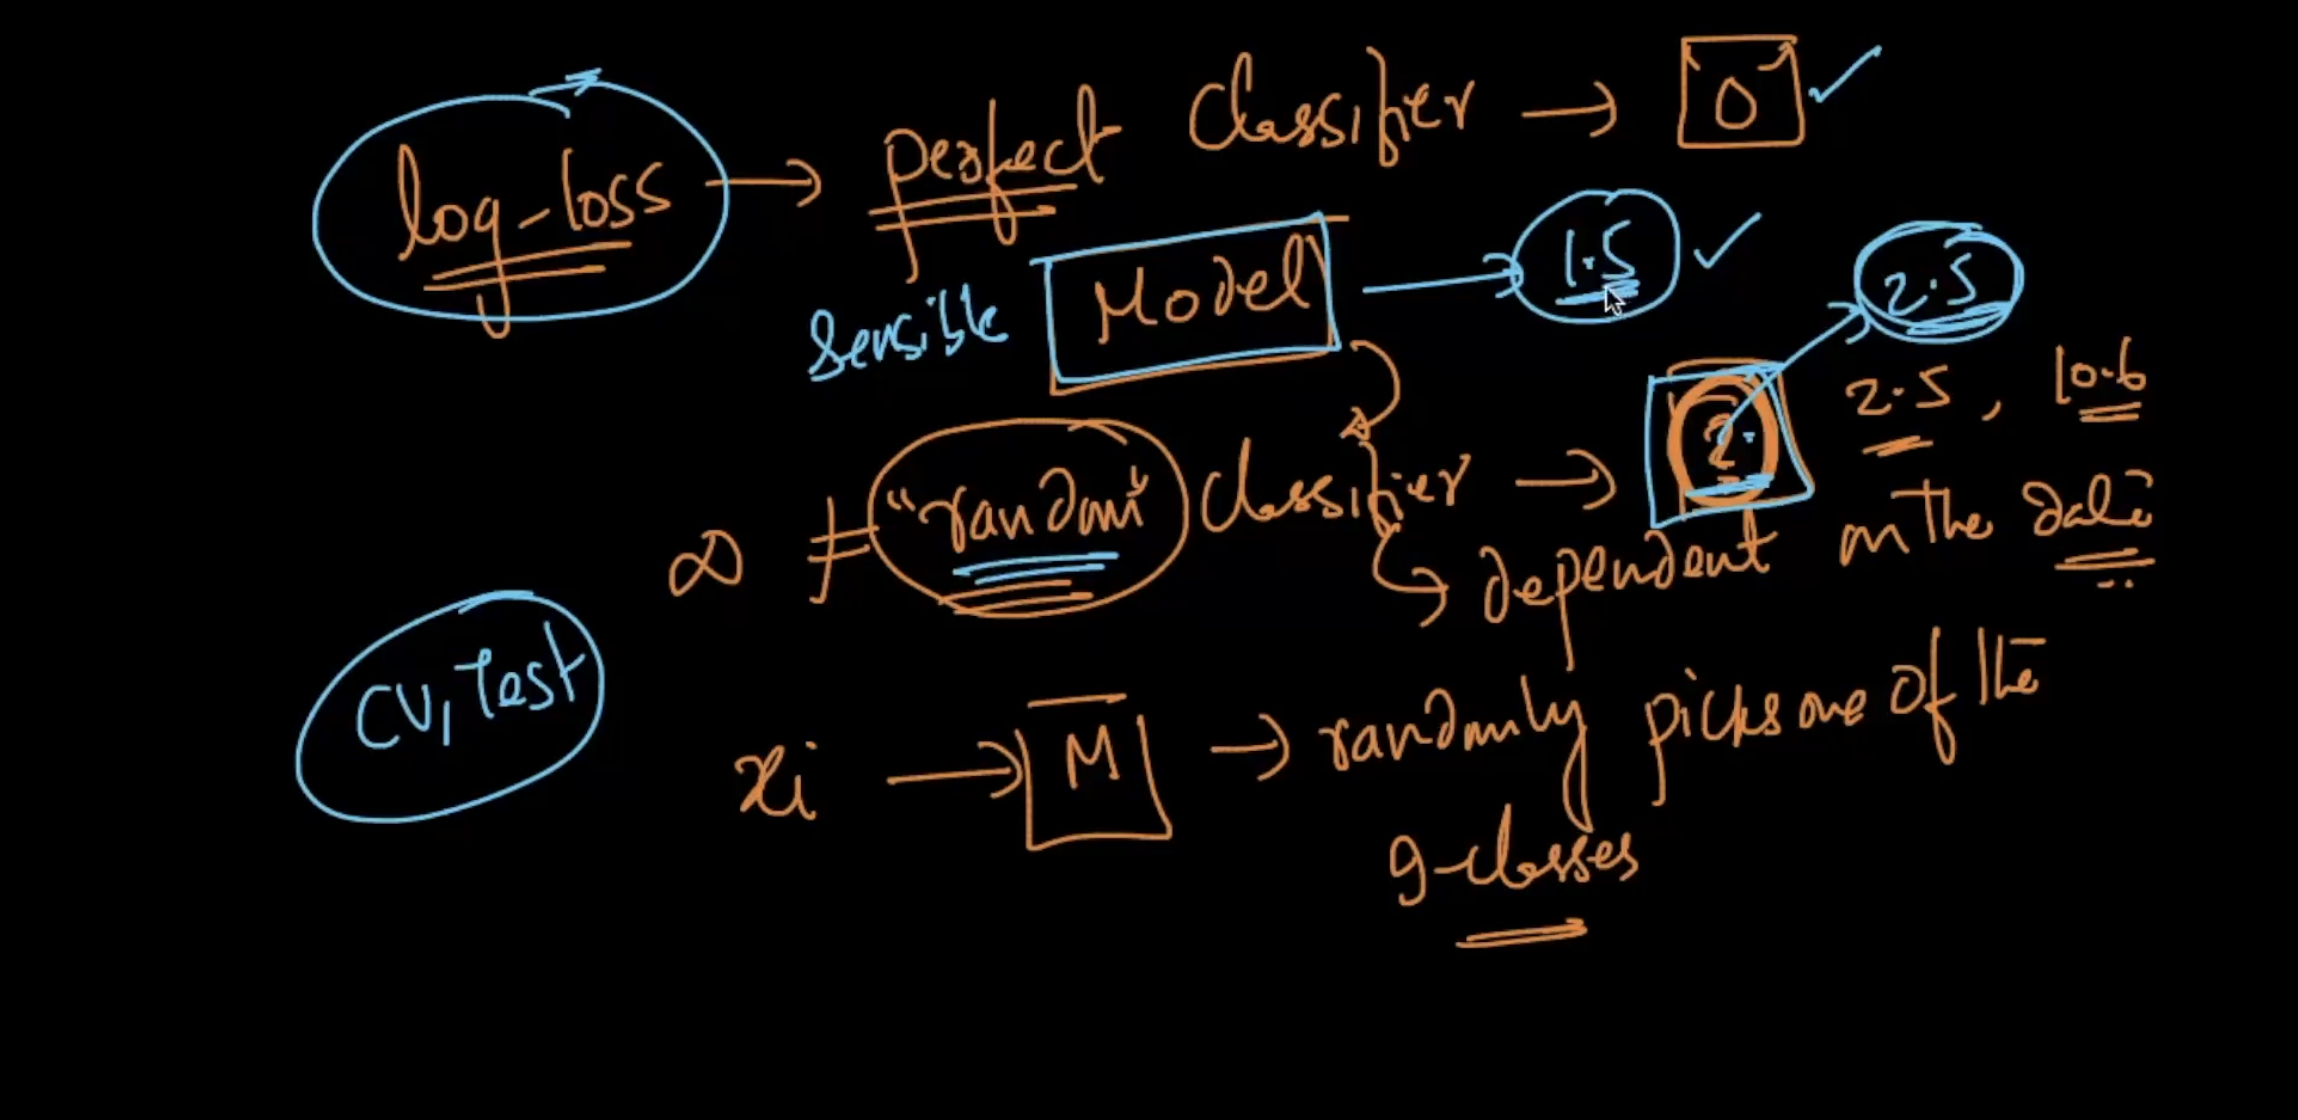 log-loss → perfect Classifier → 0 ✓
Sensible Model → 1.5 ✓
2.5
2.5, 10.6
∞ ≠ "random" Classifier → ?
dependent on the data
CV, Test
xi → M → randomly picks one of the
9-classes